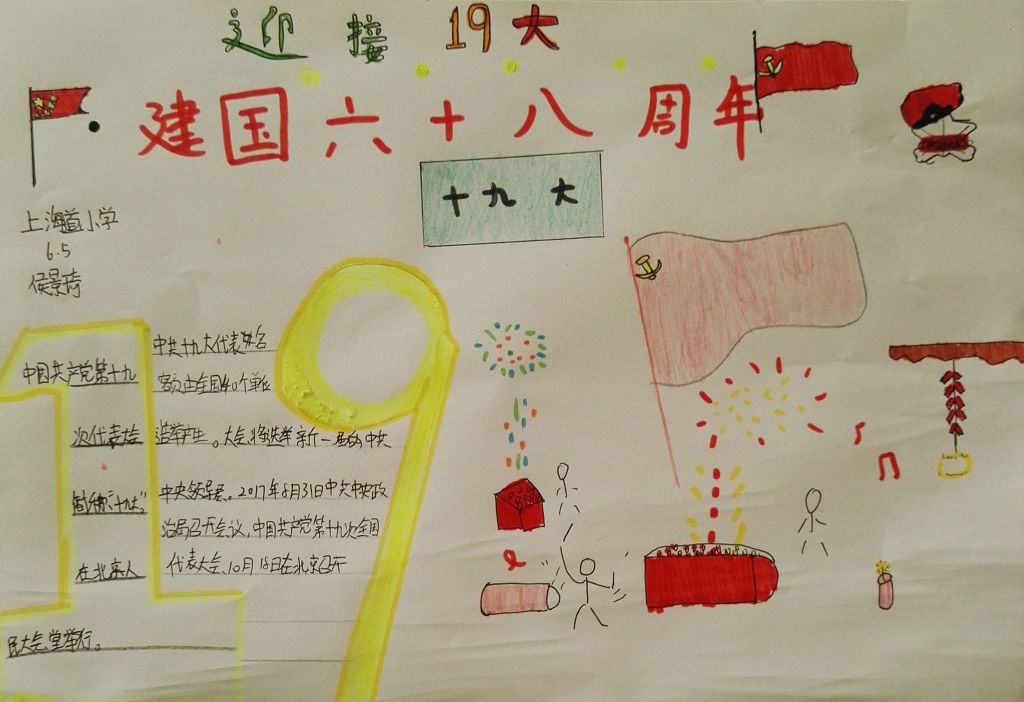 迎接19大
建国六十八周年
十九大
上海道小学
6.5
侯景琦
中国共产党第十九
次代表大会
简称“十九大”。
在北京人
民大会堂举行。
中共十九大代表
名额由全国40个单位
选举产生。大会将选举新一届的中共
中央领导层。2017年8月31日中共中央政
治局召开会议,中国共产党第十九次全国
代表大会,10月18日在北京召开